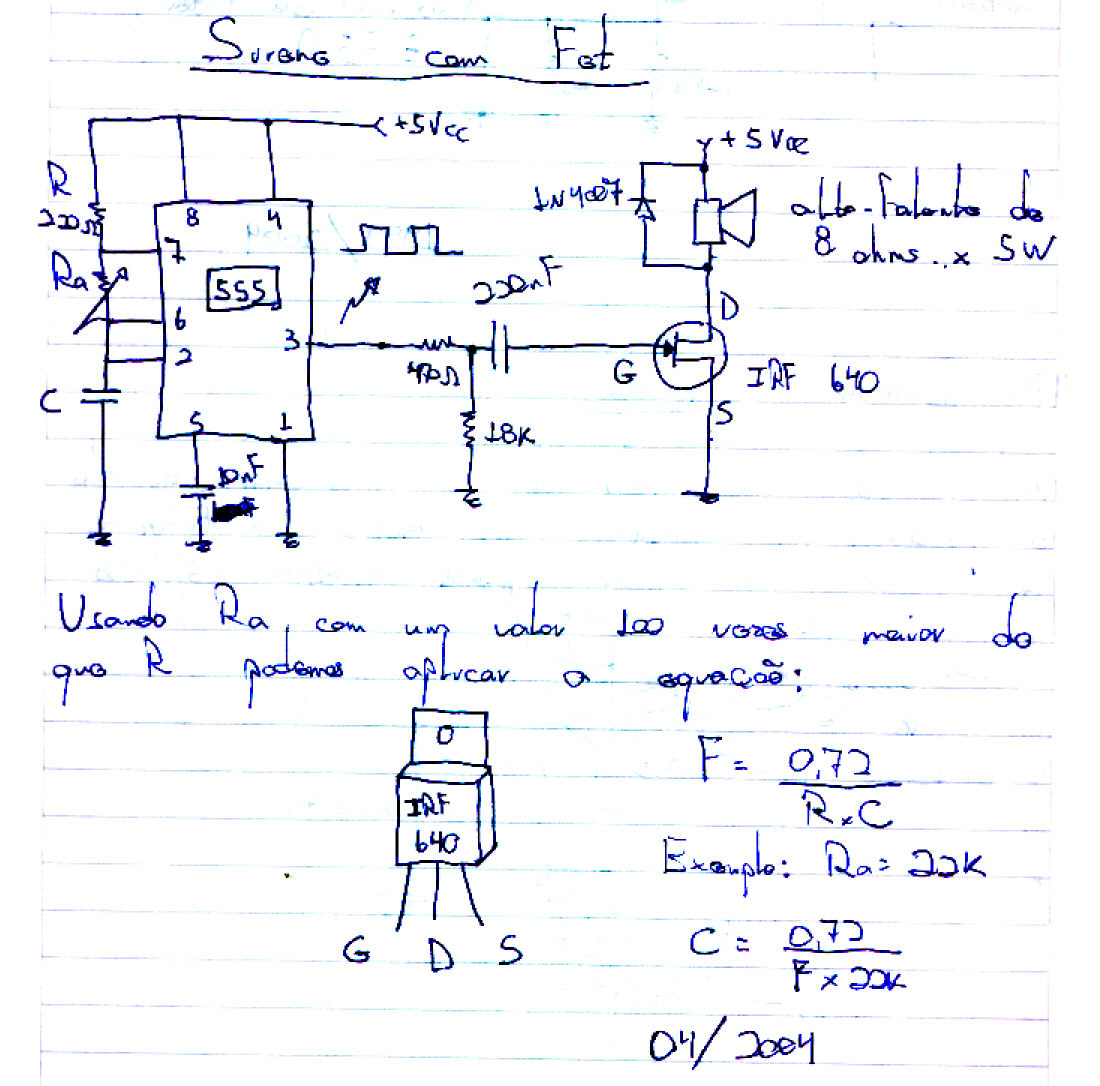 Sirene com Fet
+5Vcc
+5Vcc
R
220Ω
8
4
1N4007
alto-falante de
8 ohms x 5W
7
Ra
555
220nF
D
6
3
2
470Ω
G
IRF 640
C
S
5
1
18K
10nF
Usando Ra, com um valor 100 vezes maior do
que R podemos aplicar a equação:
IRF
640
F = 0,72
RxC
Exemplo: Ra = 22K
G D S
C = 0,72
F x 22K
04/2004